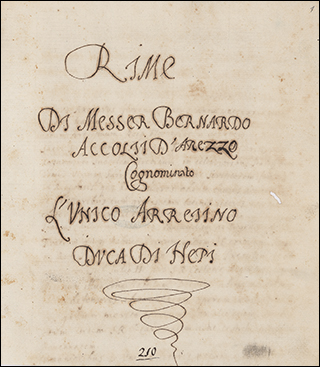 RIME
DI MESSER BERNARDO
ACCOLTI D'AREZZO
Cognominato
L'VNICO ARRETINO
DVCA DI NEPI
210